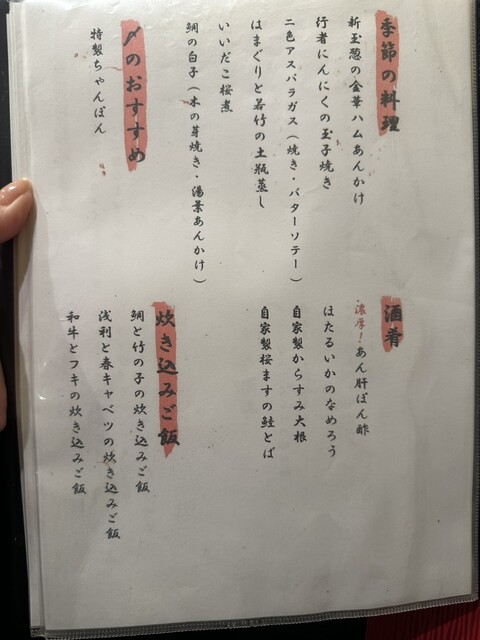 季節の料理
新玉葱の金華ハムあんかけ
行者にんにくの玉子焼き
二色アスパラガス（焼き・バターソテー）
はまぐりと若竹の土瓶蒸し
いいだこ桜煮
鯛の白子（木の芽焼き・湯葉あんかけ）
〆のおすすめ
特製ちゃんぽん
酒肴
濃厚！あん肝ぽん酢
ほたるいかのなめろう
自家製からすみ大根
自家製桜ますの鮭とば
炊き込みご飯
鯛と竹の子の炊き込みご飯
浅利と春キャベツの炊き込みご飯
和牛とフキの炊き込みご飯